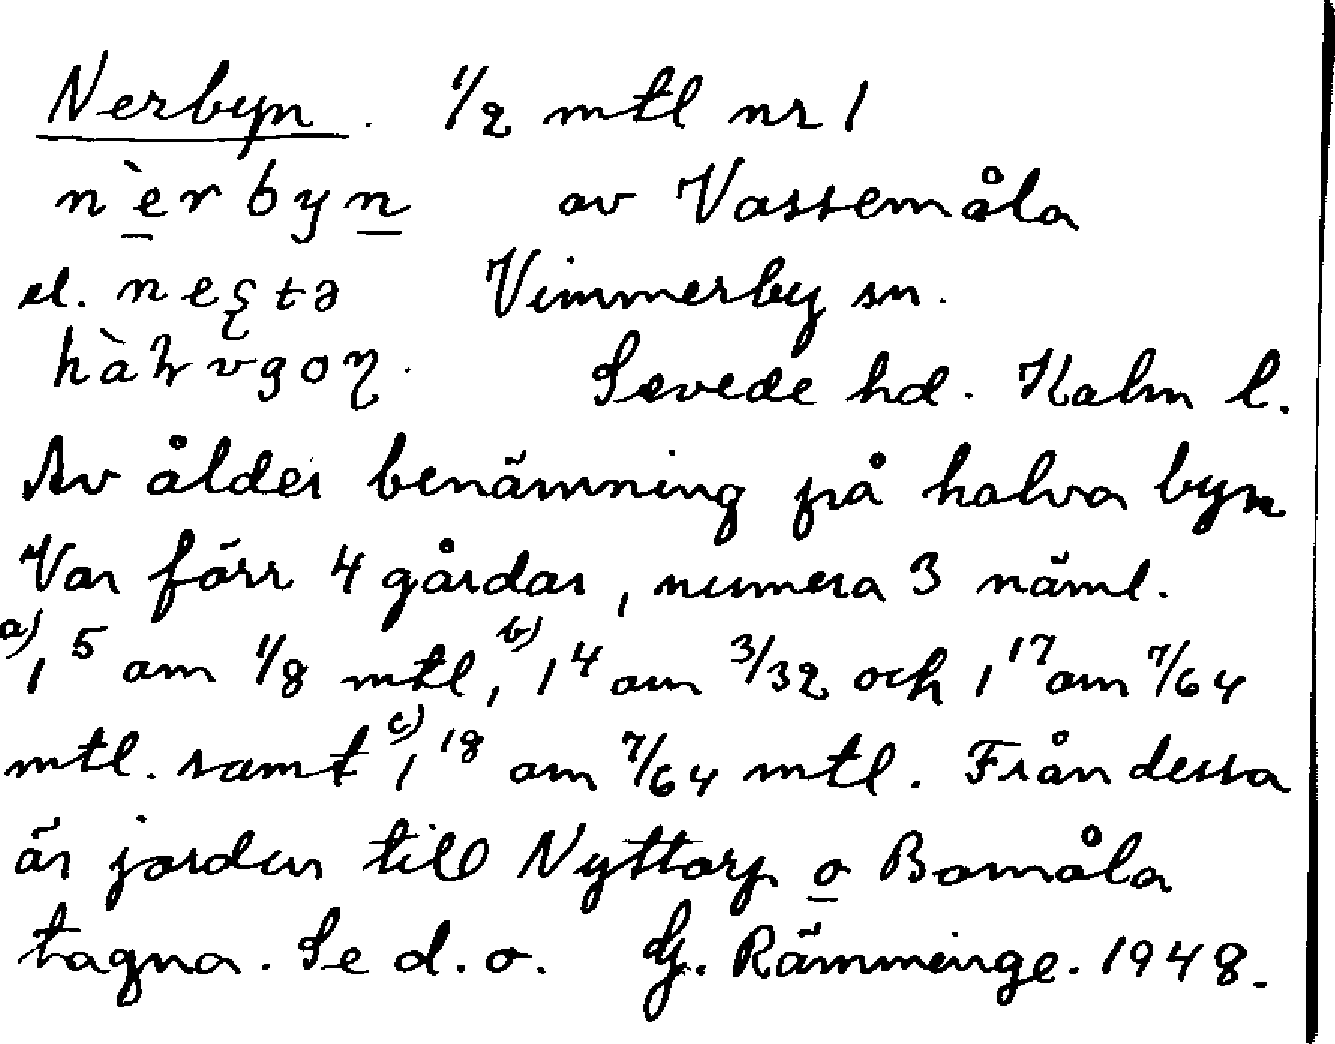 Nerbyn. 1/2 mtl nr 1
nèrbyn av Vassemåla
el. neʂtə Vimmerby sn.
Sevede hd. Kalm l.
Av ålder benämning på halva byn
Var förr 4 gårdar, numera 3 näml.
a) 1⁵ om 1/8 mtl, b) 1⁴ om 3/32 och 1¹⁷ om 7/64
mtl. samt c) 1¹⁸ om 7/64 mtl. Från dessa
är jorden till Nyttorp o Bomåla
tagna. Se d. o. G. Rämminge. 1948.